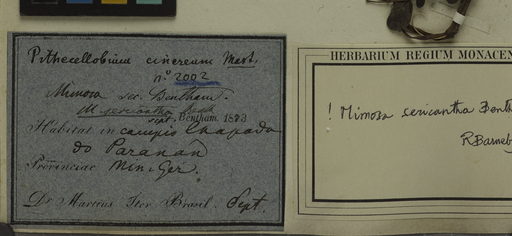 Pithecellobium cinereum Mart.
n° 2002
Mimosa sec. Bentham.
M. sericantha Benth
sept. Bentham. 1873
Habitat in campis Chapada
do Paranan
Provinciae Min. Ger.
Dr Martius Iter Brasil. Sept.
HERBARIUM REGIUM MONACEN
! Mimosa sericantha Benth
RBarneby